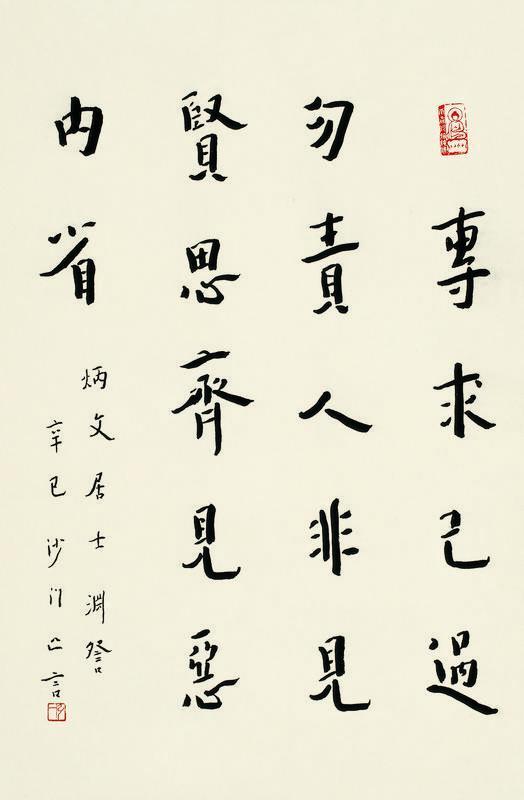 專求己過
勿責人非見
賢思齊見惡
内省
炳文居士淵詧
辛巳沙门亡言